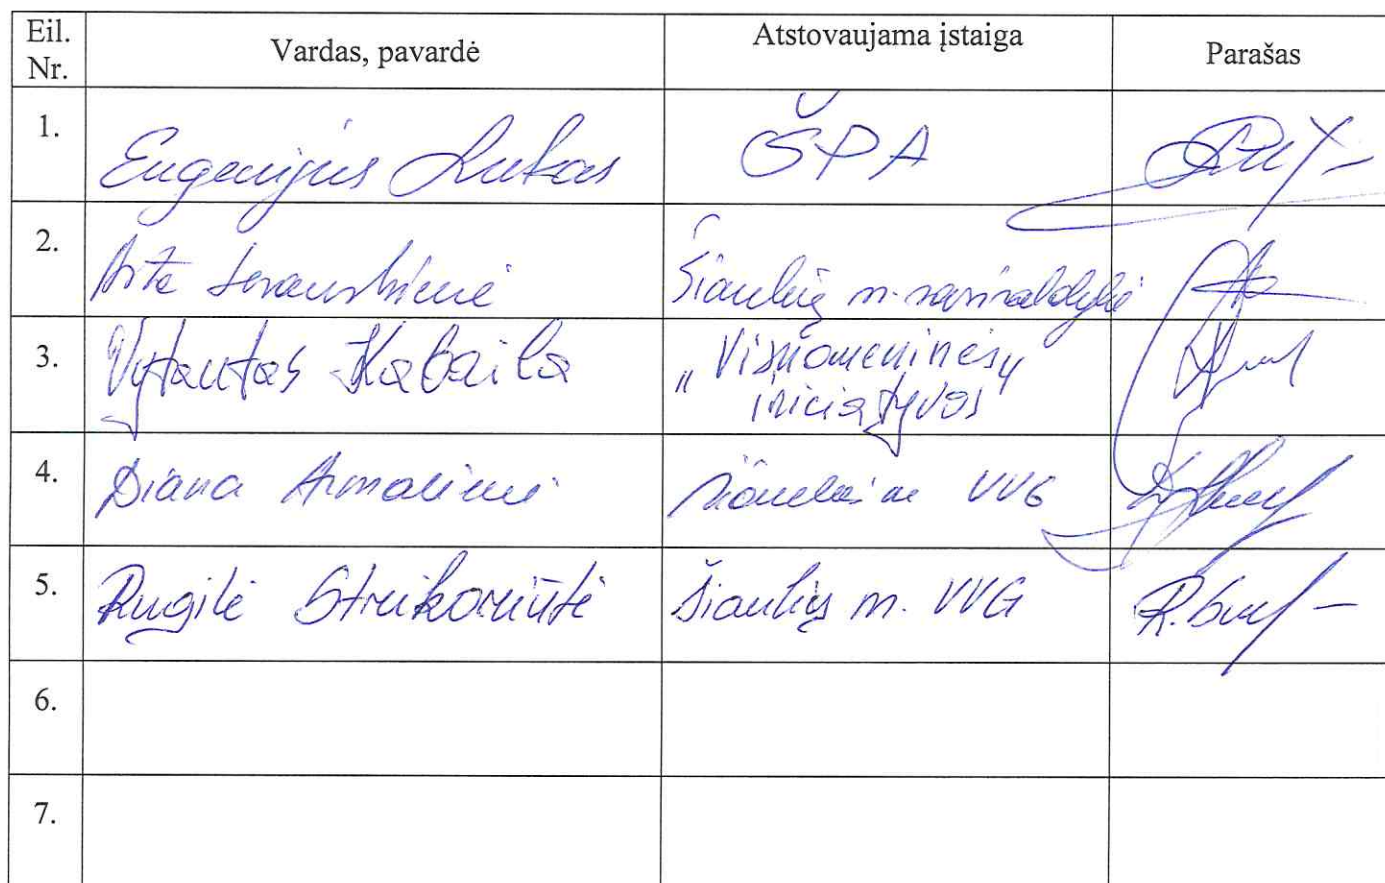 Eil. Nr. Vardas, pavardė Atstovaujama įstaiga Parašas
1. Eugenijus Lukas ŠPA
2. Asta Šiaulių m. savivaldybė
3. Vytautas Kabaila „Visuomeninės
iniciatyvos"
4. Diana Šiaulių m VVG
5. Rugilė Strikoriūtė Šiaulių m. VVG
6.
7.